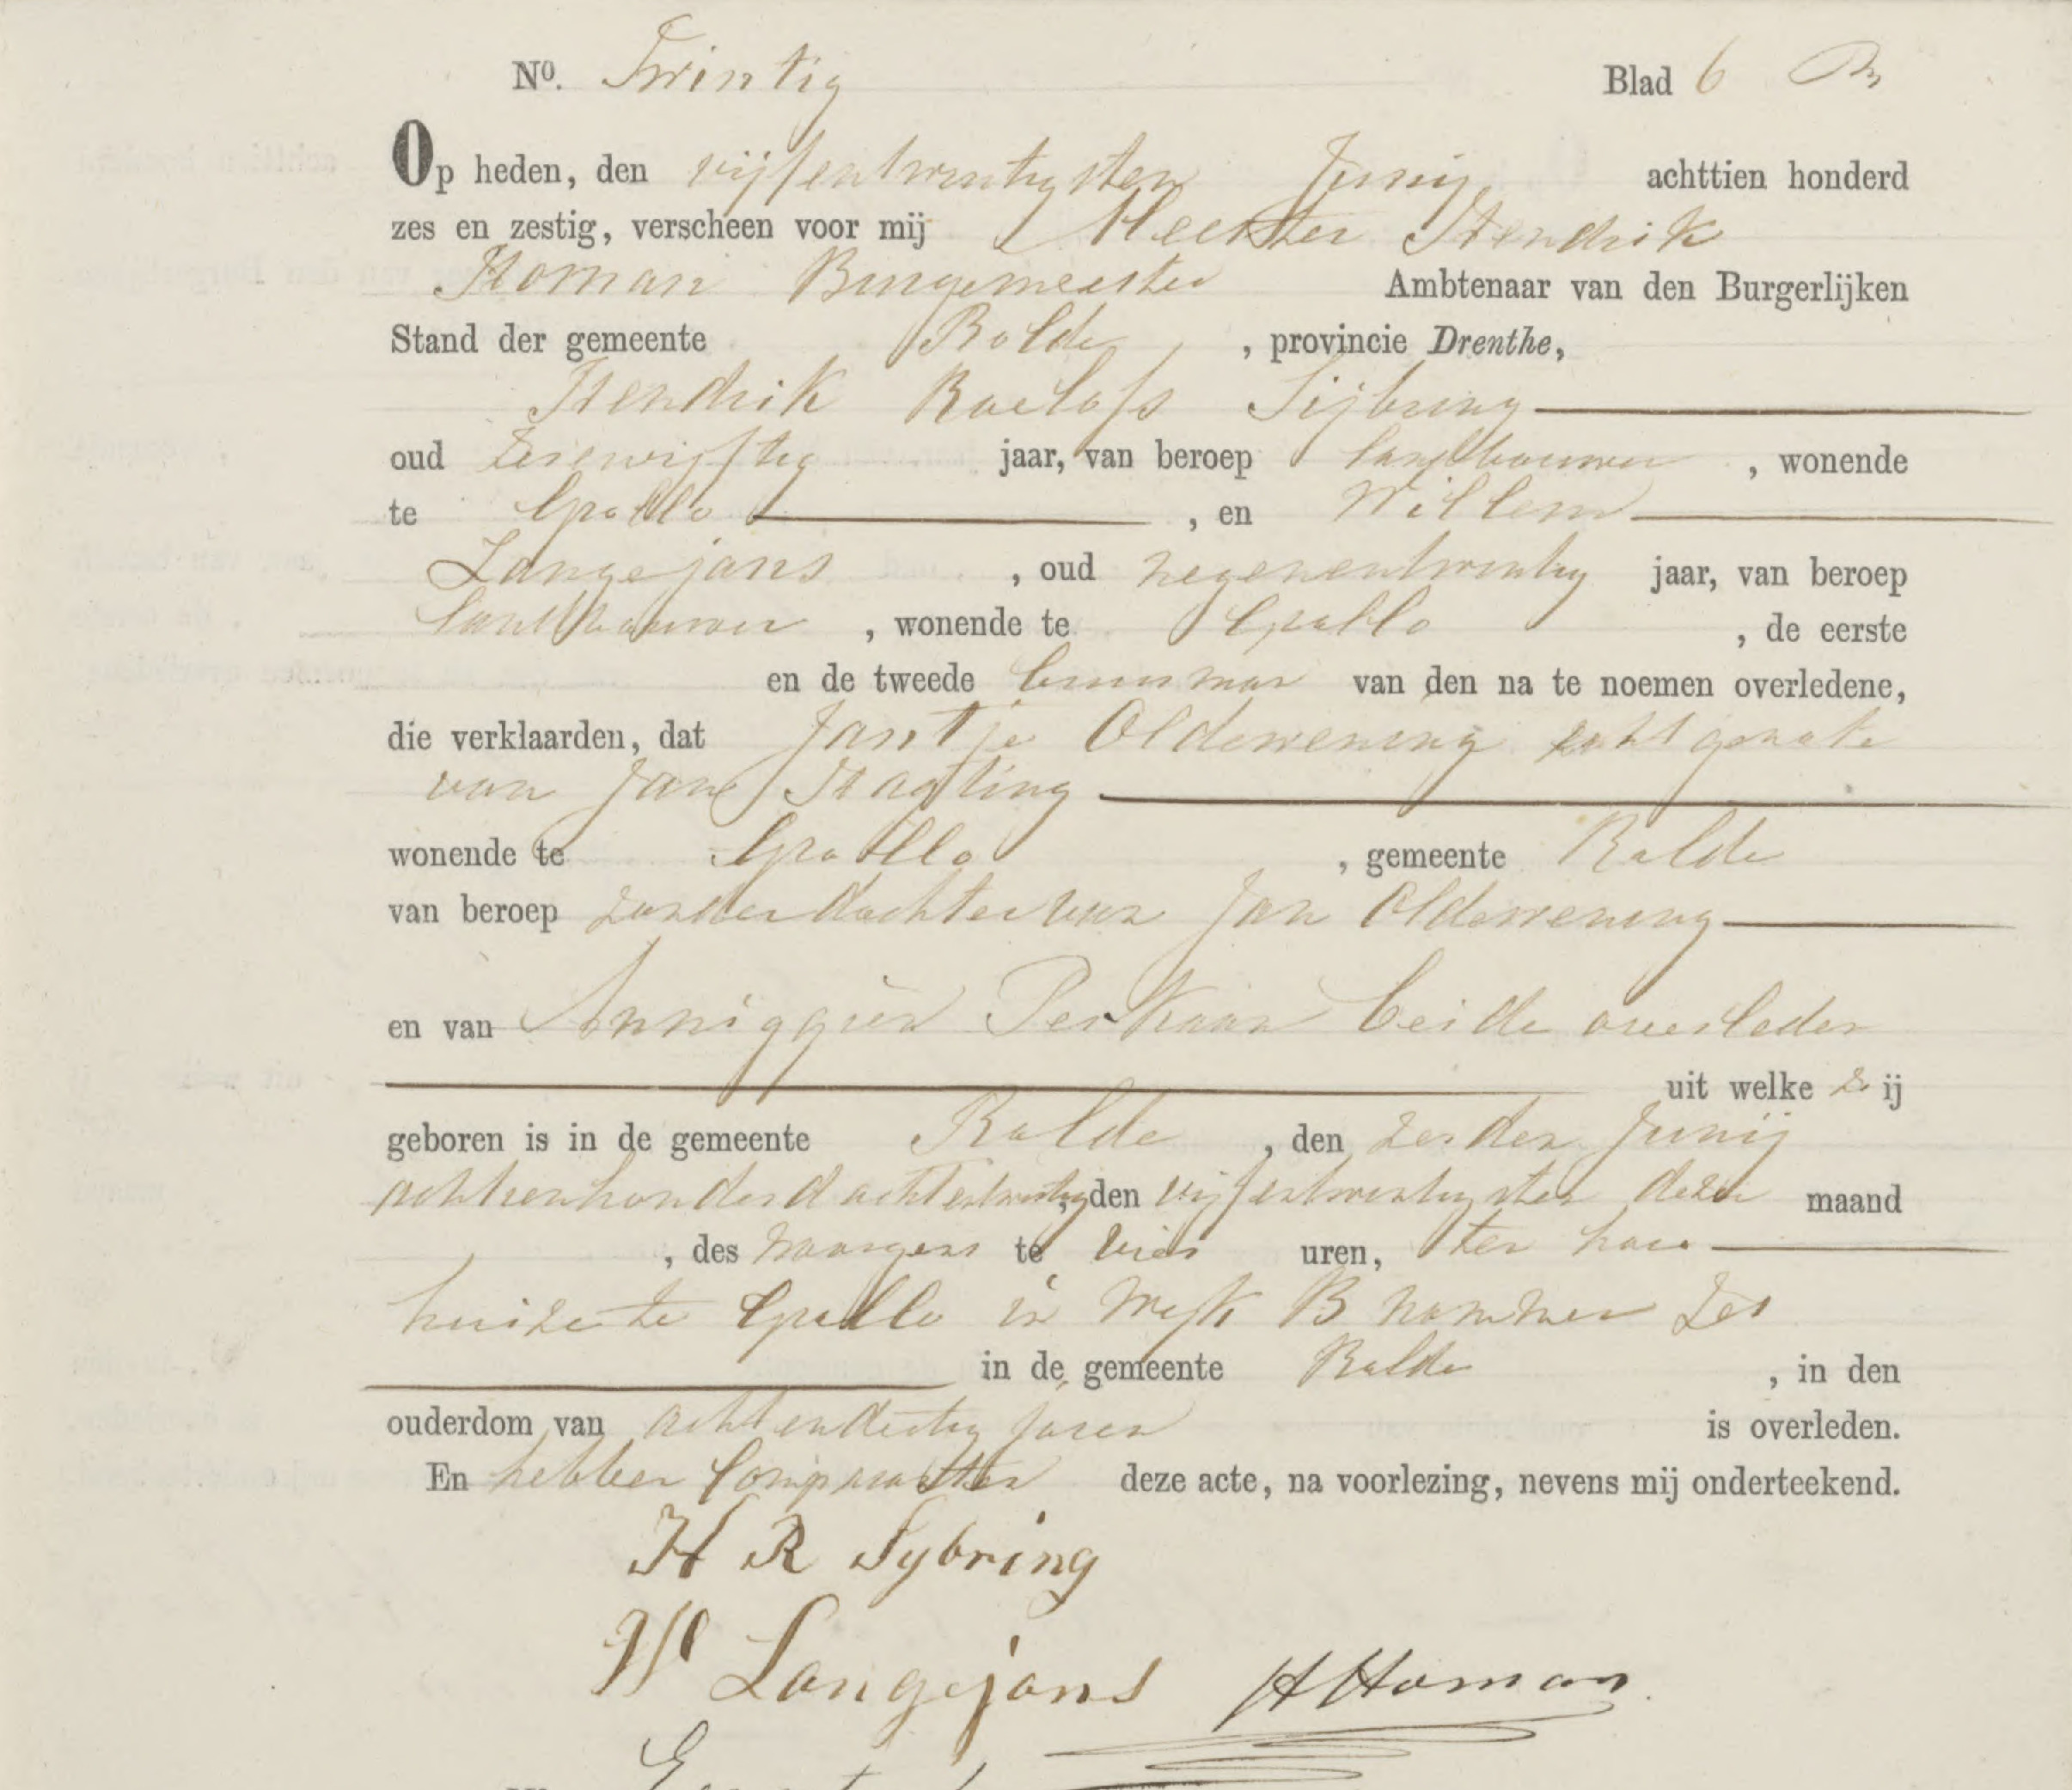 No. Twintig Blad 6
Op heden, den vijfentwintigsten Junij achttien honderd
zes en zestig, verscheen voor mij Meester Hendrik
Homan Burgemeester Ambtenaar van den Burgerlijken
Stand der gemeente Rolde, provincie Drenthe,
Hendrik Roelofs Sijbring
oud zesenvijftig jaar, van beroep landbouwer, wonende
te Grollo, en Willem
Langejans, oud negenentwintig jaar, van beroep
landbouwer, wonende te Grollo, de eerste
en de tweede buurman van den na te noemen overledene,
die verklaarden, dat Jantje Oldewening echtgenote
van Jan Hagting
wonende te Grollo, gemeente Rolde
van beroep zonder dochter van Jan Oldewening
en van Anniggien Perkaan beide overleden
uit welke zij
geboren is in de gemeente Rolde, den zesden Junij
achttienhonderd achtentwintig, den vijfentwintigsten dezer maand
, des morgens te vier uren, ten hare
huize te Grollo in wijk B nommer zes
in de gemeente Rolde, in den
ouderdom van achtendertig jaren is overleden.
En hebben Comparanten deze acte, na voorlezing, nevens mij onderteekend.
H R Sybring
W Langejans HHoman